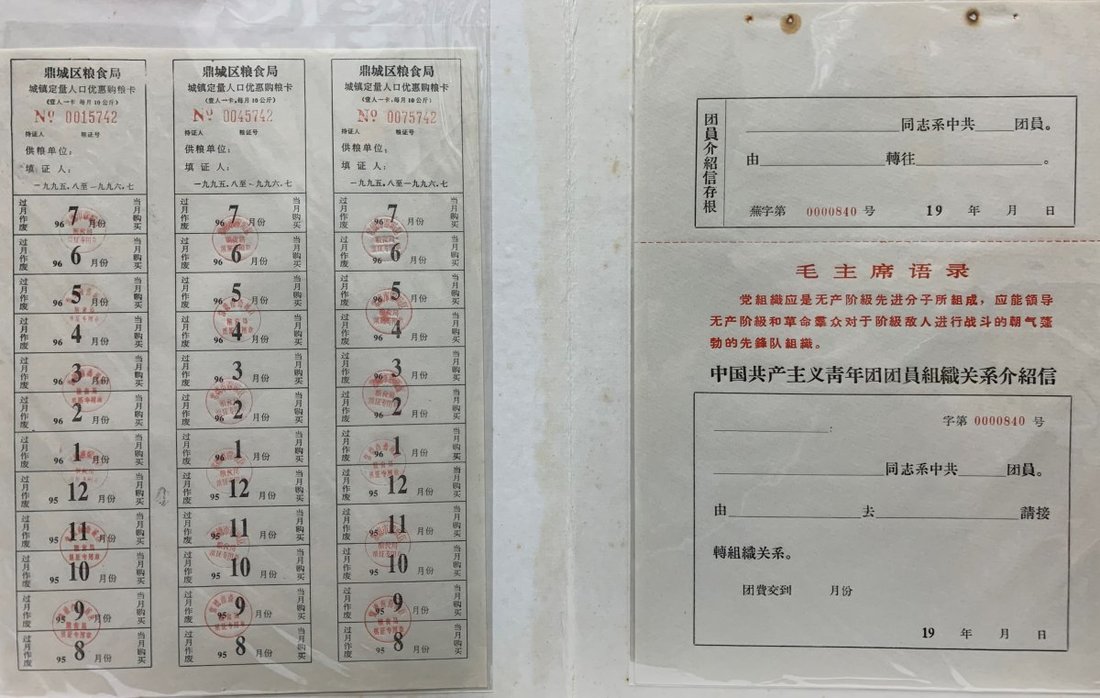 鼎城区粮食局
城镇定量人口优惠购粮卡
(壹人一卡 每月10公斤)
Nº 0015742
持证人 粮证号
供粮单位:
填证人:
一九九五.八至一九九六.七
过月作废 96 7 月份 当月购买
96 6 月份
过月作废 96 5 月份 当月购买
96 4 月份
过月作废 96 3 月份 当月购买
96 2 月份
过月作废 96 1 月份 当月购买
95 12 月份
过月作废 95 11 月份 当月购买
95 10 月份
过月作废 95 9 月份 当月购买
过月作废 95 8 月份 当月购买
鼎城区粮食局
城镇定量人口优惠购粮卡
(壹人一卡,每月10公斤)
Nº 0045742
持证人 粮证号
供粮单位:
填证人:
一九九五.八至一九九六.七
过月作废 96 7 月份 当月购买
96 6 月份
过月作废 96 5 月份 当月购买
96 4 月份
过月作废 96 3 月份 当月购买
96 2 月份
过月作废 96 1 月份 当月购买
95 12 月份
过月作废 95 11 月份 当月购买
95 10 月份
过月作废 95 9 月份 当月购买
过月作废 95 8 月份 当月购买
鼎城区粮食局
城镇定量人口优惠购粮卡
(壹人一卡,每月10公斤)
Nº 0075742
持证人 粮证号
供粮单位:
填证人:
一九九五.八至一九九六.七
过月作废 96 7 月份 当月购买
96 6 月份
过月作废 96 5 月份 当月购买
96 4 月份
过月作废 96 3 月份 当月购买
96 2 月份
过月作废 96 1 月份 当月购买
95 12 月份
过月作废 95 11 月份 当月购买
95 10 月份
过月作废 95 9 月份 当月购买
过月作废 95 8 月份 当月购买
团員介紹信存根
同志系中共 团員。
由 轉往 。
蕪字第 0000840 号 19 年 月 日
毛主席语录
党组織应是无产阶級先进分子所組成,应能领导
无产阶級和革命羣众对于阶級敌人进行战斗的朝气蓬
勃的先鋒队組織。
中国共产主义青年团团員組織关系介紹信
字第 0000840 号
:
同志系中共 团員。
由 去 請接
轉組織关系。
团費交到 月份
19 年 月 日